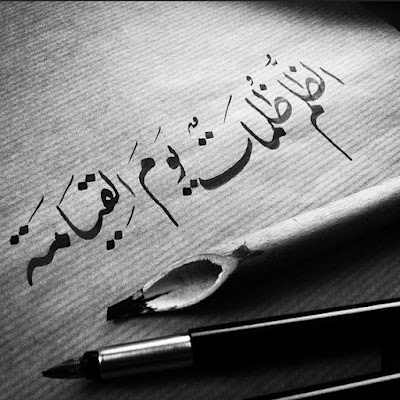 الظلم ظُلُمات يَومَ القِيَامَة